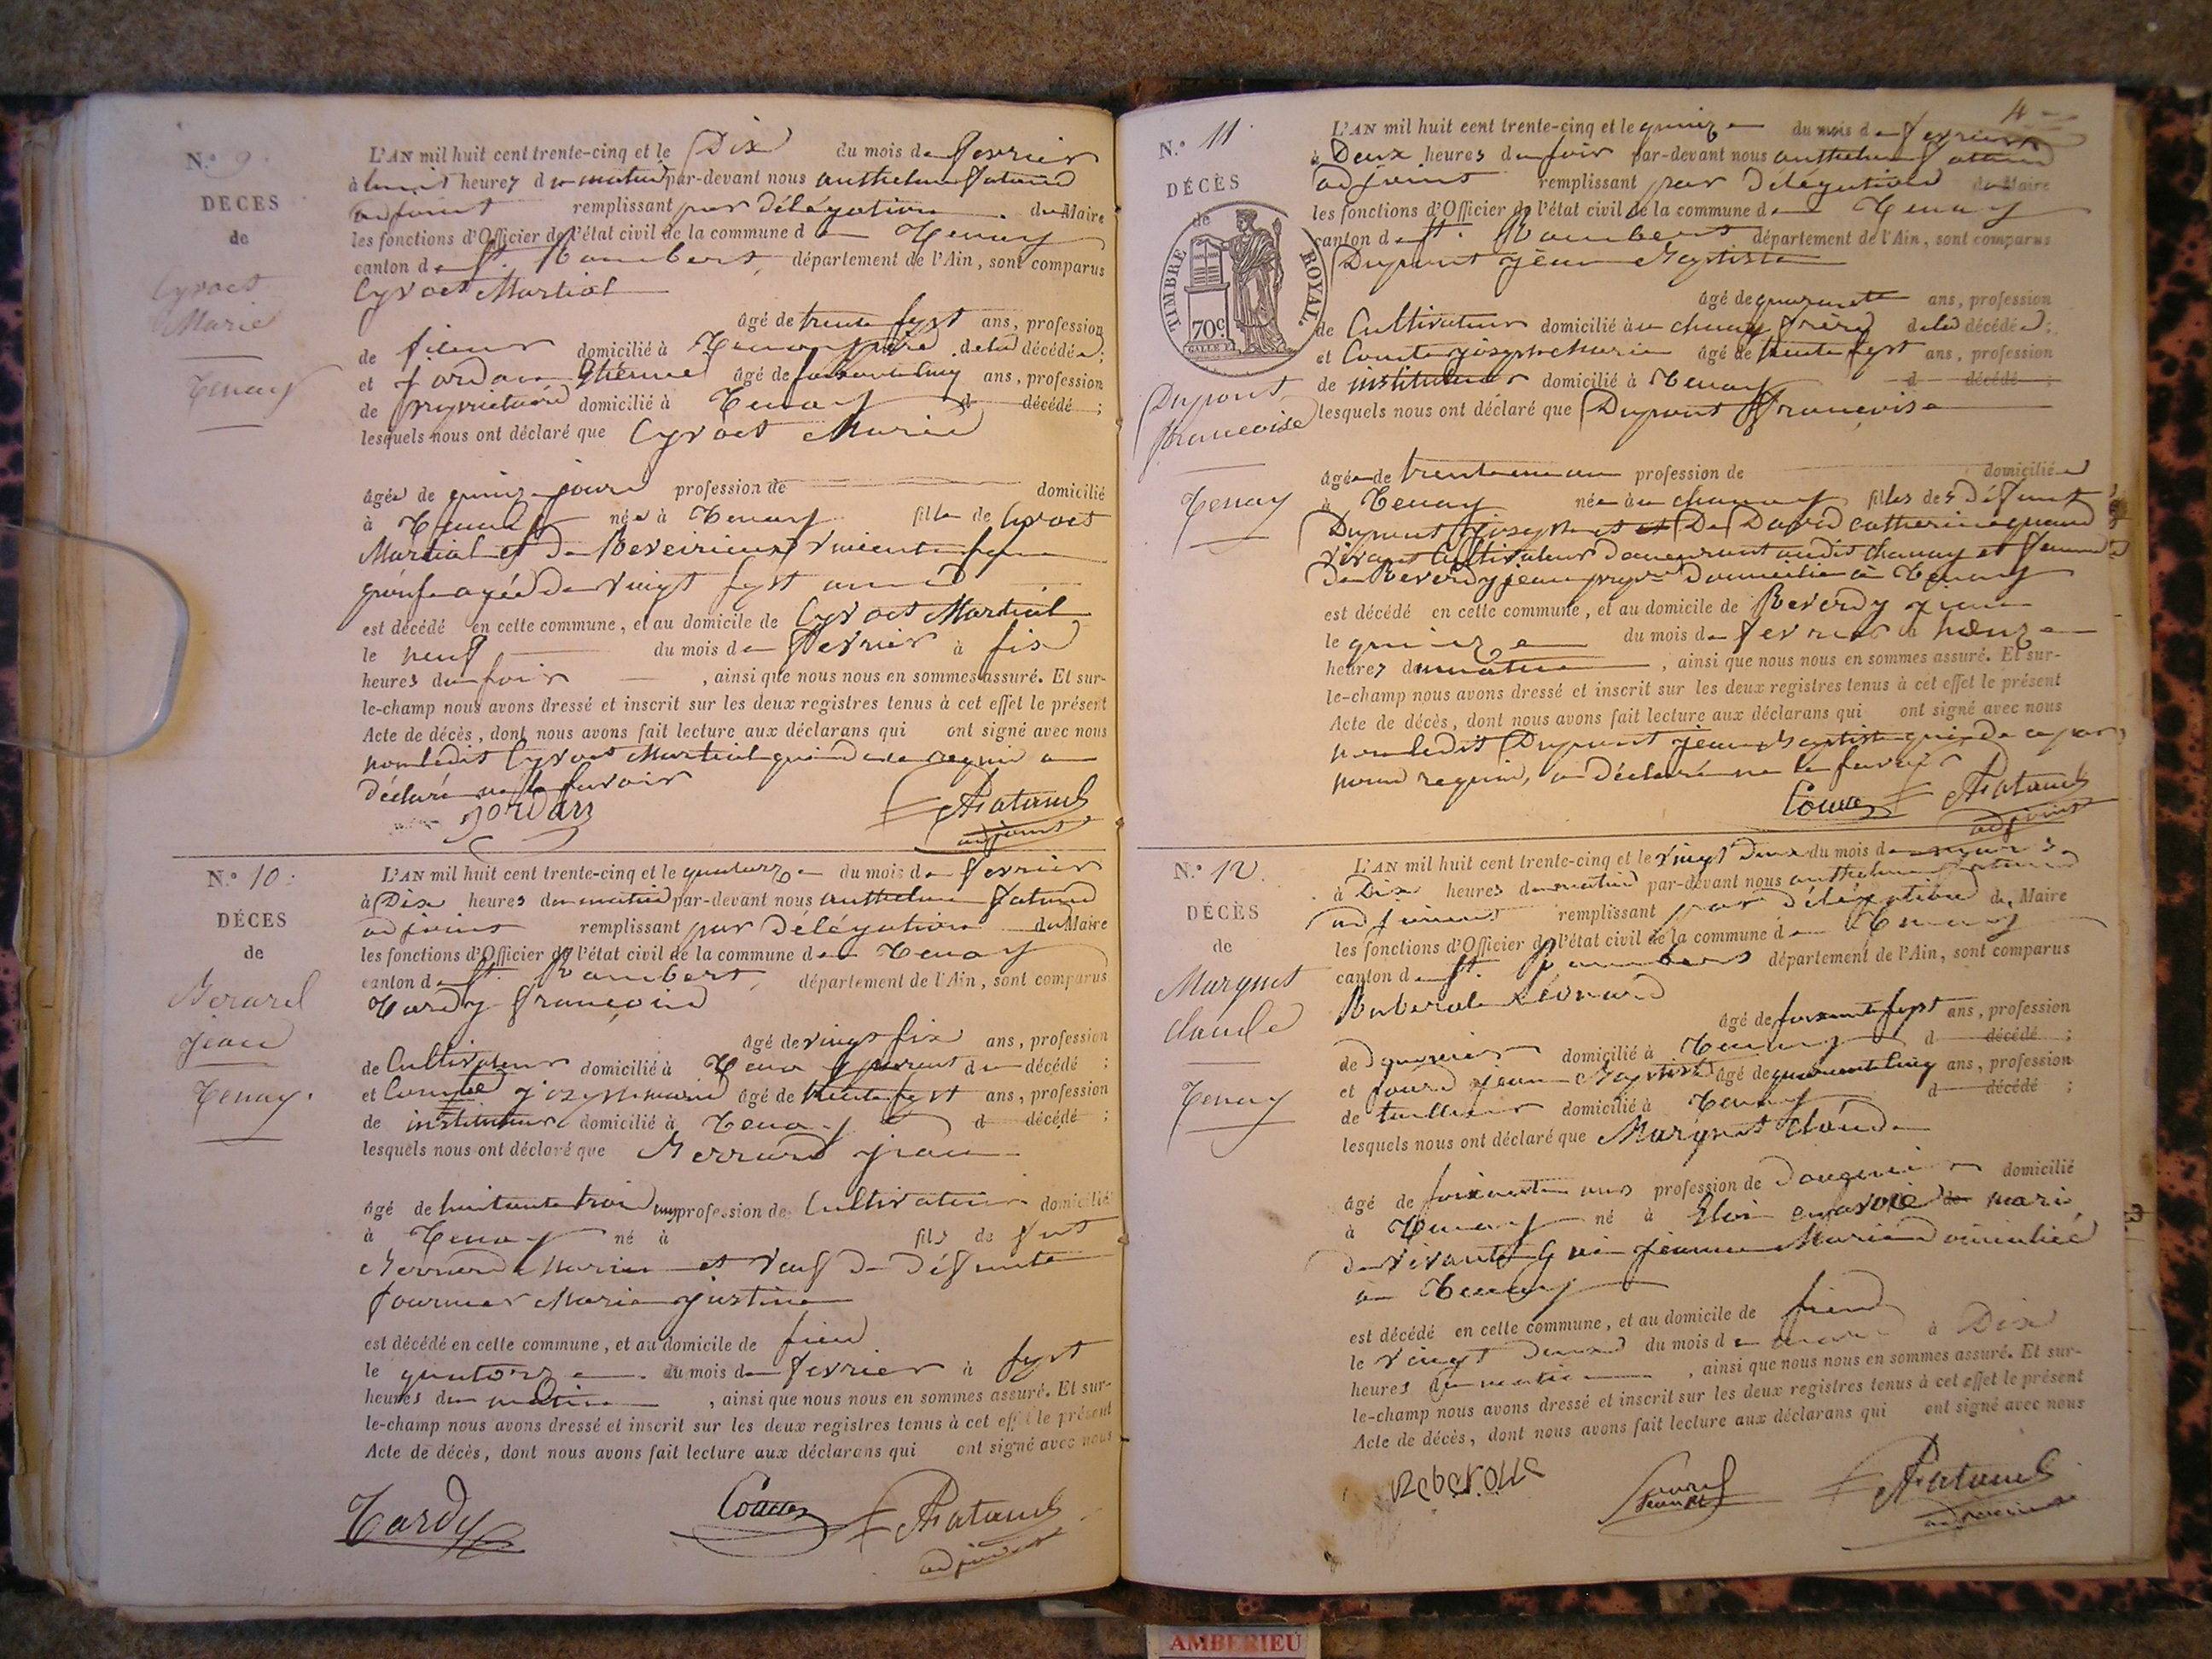 N.º 9
DÉCES
de
Cyvoct
Marie
Tenay
L'AN mil huit cent trente-cinq et le Dix du mois de fevrier
à huit heures du matin par-devant nous anthelme fatand
adjoint remplissant par délégation du Maire
les fonctions d'Officier de l'état civil de la commune de Tenay
canton de St. Rambert, département de l'Ain, sont comparus
Cyvoct Martial
âgé de trente sept ans, profession
de domicilié à Tenay père de la décédée ;
et Jordan Etienne âgé de soixante cinq ans, profession
de propriétaire domicilié à Tenay d décédé ;
lesquels nous ont déclaré que Cyvoct Marie
âgée de quinze jours profession de domicilié
à Tenay née à Tenay fille de Cyvoct
Martial et de
âgée de vingt sept ans
est décédé en cette commune, et au domicile de Cyvoct Martial
le neuf du mois de fevrier à six
heures du soir , ainsi que nous nous en sommes assuré. Et sur-
le-champ nous avons dressé et inscrit sur les deux registres tenus à cet effet le présent
Acte de décès, dont nous avons fait lecture aux déclarans qui ont signé avec nous
non ledit Cyvoct Martial qui de ce requis a
déclaré ne le savoir
Jordan Fatand
adjoint
N.º 10
DÉCES
de
Berard
jean
Tenay.
L'AN mil huit cent trente-cinq et le quatorze du mois de fevrier
à Dix heures du matin par-devant nous anthelme fatand
adjoint remplissant par délégation du Maire
les fonctions d'Officier de l'état civil de la commune de Tenay
canton de St. Rambert, département de l'Ain, sont comparus
Tardy françois
âgé de vingt six ans, profession
de Cultivateur domicilié à Tenay parent du décédé ;
et Comte joseph marie âgé de trente sept ans, profession
de instituteur domicilié à Tenay d décédé ;
lesquels nous ont déclaré que Berrard jean
âgé de huitante trois ans profession de Cultivateur domicilié
à Tenay né à fils de fut
Berrard Marin et veuf de défunte
fournier Marie justine
est décédé en cette commune, et au domicile de sien
le quatorze du mois de fevrier à sept
heures du matin , ainsi que nous nous en sommes assuré. Et sur-
le-champ nous avons dressé et inscrit sur les deux registres tenus à cet effet le présent
Acte de décès, dont nous avons fait lecture aux déclarans qui ont signé avec nous
Tardy Comte Fatand
adjoint
4
N.º 11
DÉCÈS
de
TIMBRE ROYAL.
70c
Dupont
francoise
Tenay
L'AN mil huit cent trente-cinq et le quinze du mois de fevrier
à Deux heures du soir par-devant nous anthelme fatand
adjoint remplissant par délégation du Maire
les fonctions d'Officier de l'état civil de la commune de Tenay
canton de St. Rambert département de l'Ain, sont comparus
Dupont jean Baptiste
âgé de quarante ans, profession
de Cultivateur domicilié à au chanay frère de la décédée ;
et Comte joseph marie âgé de trente sept ans, profession
de instituteur domicilié à Tenay d décédé ;
lesquels nous ont déclaré que Dupont francoise
âgée de trente un ans profession de domiciliée
à Tenay née à au chanay fille des défunts
Dupont joseph et De David catherine quand
vivant Cultivateur demeurant audit chanay et femme
De Reverdy jean propre Domicilié à Tenay
est décédé en cette commune, et au domicile de Reverdy jean
le quinze du mois de fevrier à onze
heures du matin , ainsi que nous nous en sommes assuré. Et sur-
le-champ nous avons dressé et inscrit sur les deux registres tenus à cet effet le présent
Acte de décès, dont nous avons fait lecture aux déclarans qui ont signé avec nous
non ledit Dupont jean Baptiste qui de ce par
nous requis, a déclaré ne le savoir
Comte Fatand
adjoint
N.º 12.
DÉCÈS
de
Marguet
claude
Tenay
L'AN mil huit cent trente-cinq et le vingt deux du mois de mars
à Dix heures du matin par-devant nous anthelme fatand
adjoint remplissant par délégation du Maire
les fonctions d'Officier de l'état civil de la commune de Tenay
canton de St. Rambert département de l'Ain, sont comparus
Léonard
âgé de soixante sept ans, profession
de domicilié à Tenay d décédé ;
et jean Baptiste âgé de quarante cinq ans, profession
de tailleur domicilié à Tenay d décédé ;
lesquels nous ont déclaré que Marguet Claude
âgé de soixante ans profession de domicilié
à Tenay né à en savoie mari
de vivante jeanne Marie Domiciliée
a Tenay
est décédé en cette commune, et au domicile de sien
le vingt deux du mois de mars à Dix
heures du matin , ainsi que nous nous en sommes assuré. Et sur-
le-champ nous avons dressé et inscrit sur les deux registres tenus à cet effet le présent
Acte de décès, dont nous avons fait lecture aux déclarans qui ont signé avec nous
Fatand
adjoint
AMBERIEU